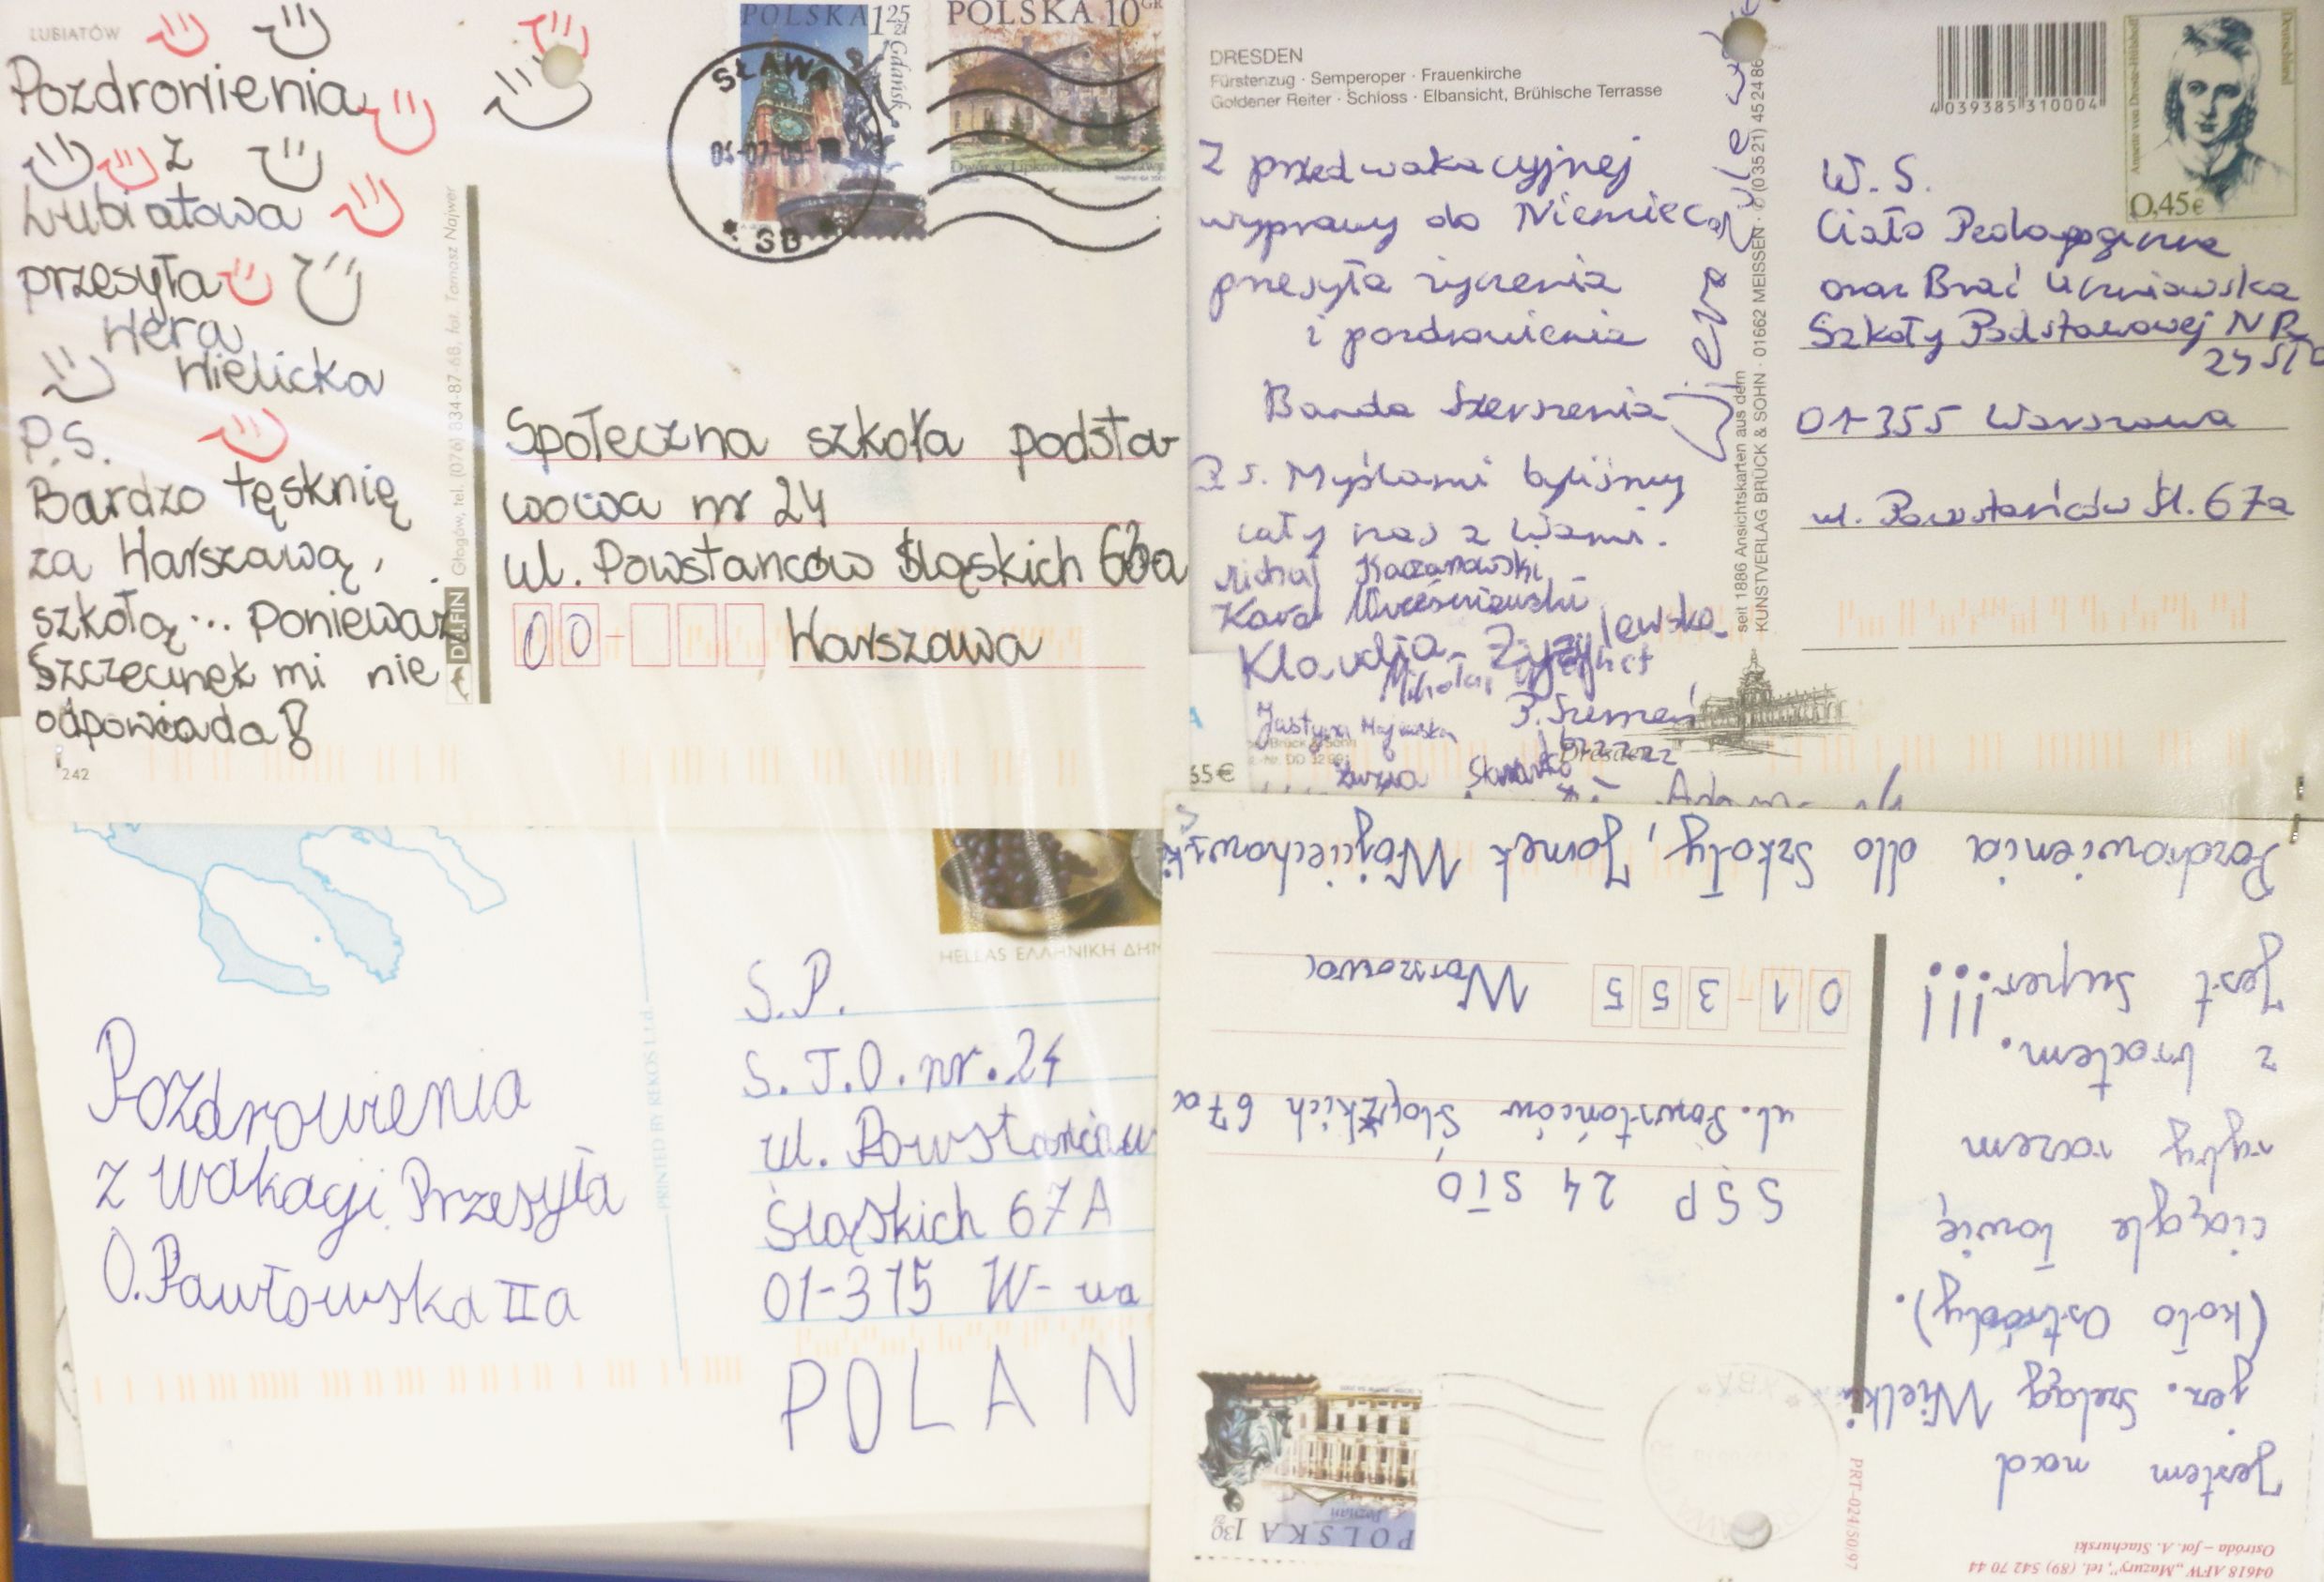 LUBIATÓW
Pozdrowienia
z
Lubiatowa
przesyła
Wera
Wielicka
P.S.
Bardzo tęsknię
za Warszawą,
szkołą... Ponieważ
Szczecinek mi nie
odpowiada!
242
DELFIN Głogów, tel. (076) 834-87-68, fot. Tomasz Najwer
POLSKA 1 25 zł
Gdańsk
POLSKA 10 GR
SŁAWA
Społeczna szkoła podsta-
wowa nr 24
ul. Powstańców Śląskich
00- Warszawa
DRESDEN
Fürstenzug · Semperoper · Frauenkirche
Goldener Reiter · Schloss · Elbansicht, Brühlsche Terrasse
Z przedwakacyjnej
wyprawy do Niemiec
przesyła życzenia
i pozdrowienia
Banda Szerszenia
P.S. Myślami byliśmy
cały czas z Wami.
Michał Kaczanowski
Klaudia
Justyna Majewska
P. Szerszeń
bzzzzz
Dresden
seit 1886 Ansichtskarten aus dem
KUNSTVERLAG BRÜCK & SOHN · 01662 MEISSEN · (03521) 45 24 86
4039385 310004
Annette von Droste-Hülshoff
Deutschland
0,45€
W. S.
Ciało Pedagogiczne
oraz Brać Uczniowska
Szkoły Podstawowej NR
24 STO
01-355 Warszawa
ul. Powstańców Śl. 67a
55€
HELLAS ΕΛΛΗΝΙΚΗ ΔΗΜ
PRINTED BY REKOS Ltd.
Pozdrowienia
z wakacji Przesyła
O. Pawłowska IIa
S.P.
S.T.O. nr. 24
ul. Powstańców
Śląskich 67A
01-315 W-wa
POLAN
04618 AFW „Mazury”, tel. (89) 542 70 44
Ostróda – fot. A. Stachurski
PRT-024/50/97
Jestem nad
jez. Szeląg Wielki
(koło Ostródy).
ciągle łowię
ryby razem
z bratem.
Jest super!!!
Pozdrowienia dla szkoły, Jomek Wojciechowski
POLSKA 1 30 zł
Poznań
SSP 24 STO
ul. Powstańców Śląskich 67a
01-355 Warszawa